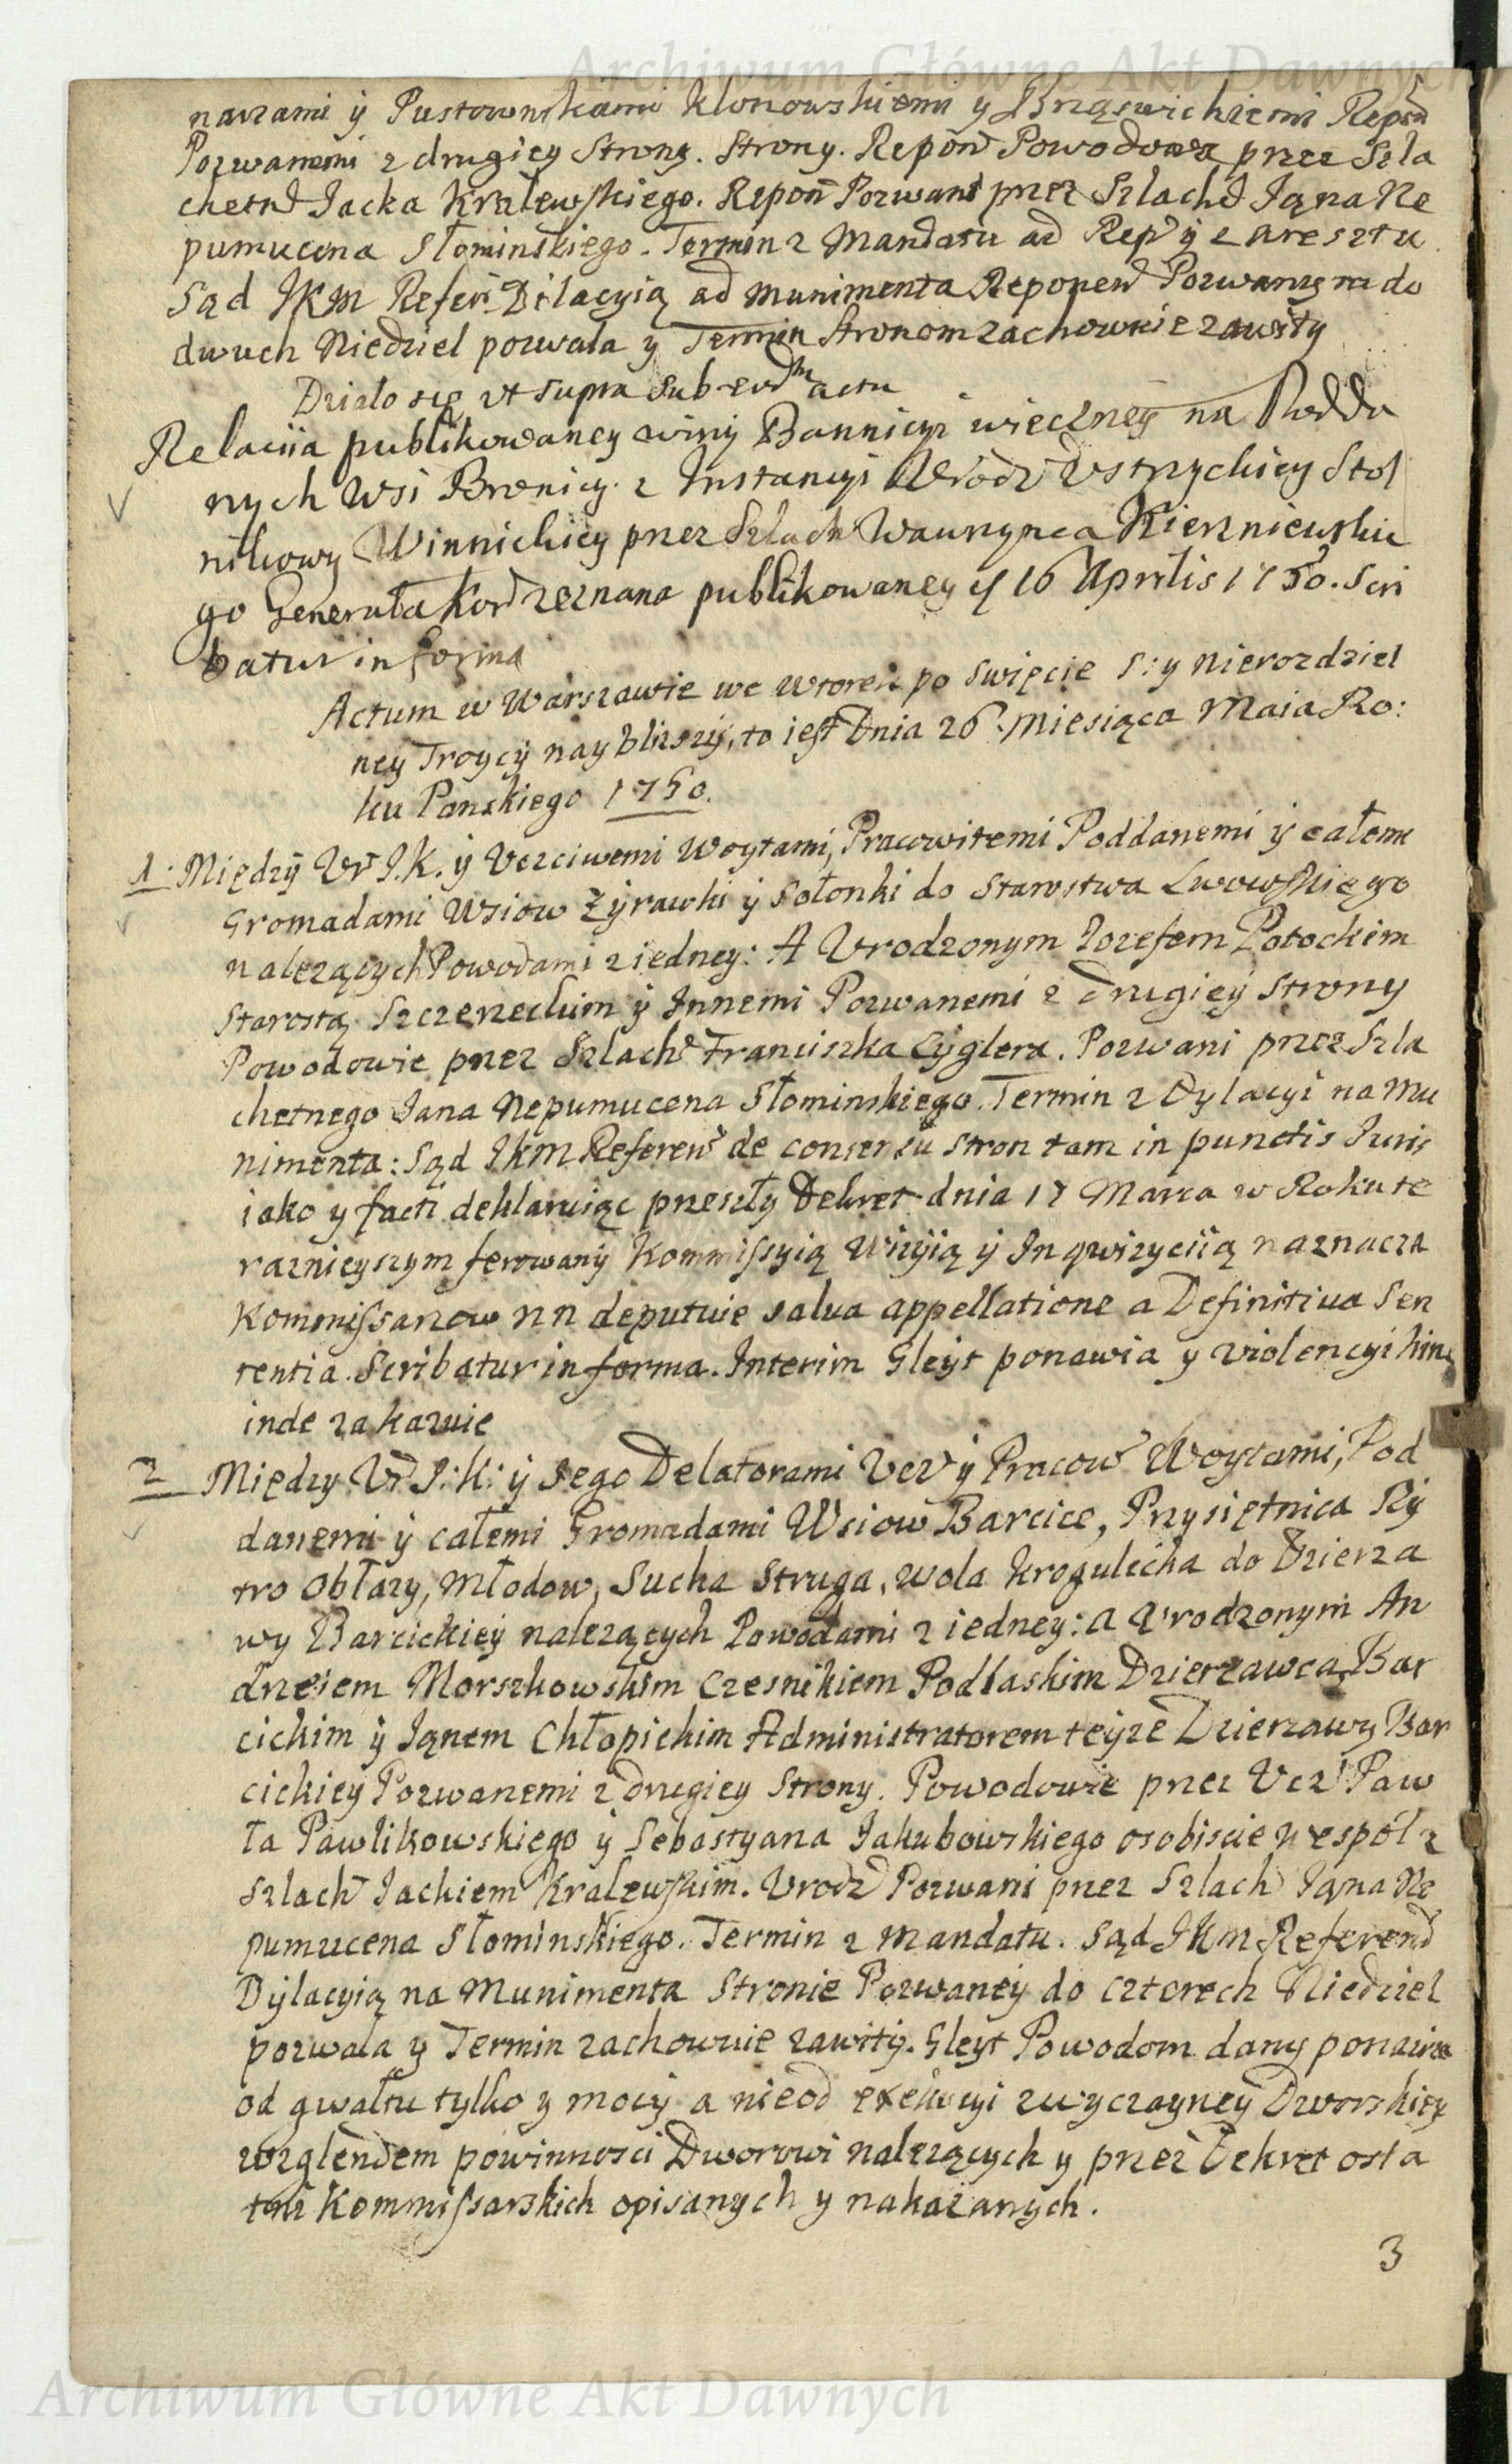 Archiwum Główne Akt Dawnych
narzami ÿ Pustownikami Klonowskiemi y Brząswickiemi Repoñd
Pozwanemi z drugiey Strony. Strony. Repoñ Powodowa przez Szla
chetnd Jacka Kralewskiego. Repoñ Pozwani przez Szlachd Jana Ne
pumucena Słominskiego. Termin z Mandatu ad Rep ÿ z aresztu
Sąd JKM Refer Dilacyią ad munimenta Reponend Pozwany do
dwuch Niedziel pozwala y Termin stronom zachowuie zawity
Działo się vt supra sub eodm actu
Relacija publikowaney winÿ Bannicyi wieczneÿ na Podda
nych Wsi Bronicy z Instancyi Urodz Ustrzyckiey Stol
nikowy Winnickiey przez Szlach Wawrzynca Kierzniewskie
go Generała Kor zeznana publikowaney d 16 Aprilis 1750. Scri
batur in forma
Actum w Warszawie we Wtorek po Swięcie S: y Nierozdziel
ney Troycÿ nayblizszÿ, to iest Dnia 26. Miesiąca Maia Ro:
ku Panskiego 1750.
1. Międzÿ Ur J.K. ÿ Uczciwemi Woytami, Pracowitemi Poddanemi ÿ całemi
Gromadami Wsiow Zÿrawki ÿ Sołonki do Starostwa Lwowskiego
nalezących Powodami z iedney: A Urodzonym Jozefem Potockim
Starostą Szczerzeckim ÿ Innemi Pozwanemi z drugieÿ strony
Powodowie przez Szlachd Franciszka Cÿglera. Pozwani przez Szla
chetnego Jana Nepumucena Słominskiego. Termin z Dylacyi na Mu
nimenta: Sąd JKM Referen de consensu stron tam in punctis Juris
iako y facti deklaruiąc przeszły Dekret dnia 17 Marca w Roku te
raznieyszym ferowanÿ Kommissyią Wizÿią ÿ Inqwizyciią naznacza
Kommissarzow nn deputuie salva appellatione a Definitiva Sen
tentia. Scribatur in forma. Interim Gleyt ponawia y violencyi hinc
inde zakazuie
2 Międzÿ Ur J:K: ÿ Jego Delatorami Ucz ÿ Pracow Woytami, Pod
danemi ÿ całemi Gromadami Wsiow Barcice, Przysietnica Rÿ
tro Obłazy, Młodow, Sucha Struga, Wola Krogulecka do Dzierza
wy Barcickieÿ nalezących Powodami z iedney: a Urodzonym An
drzeiem Morszkowskim Czesnikiem Podlaskim Dzierzawcą Bar
cickim ÿ Janem Chłopickim Administratorem teÿze Dzierzawy Bar
cickiey Pozwanemi z drugiey Strony. Powodowie przez Ucz Paw
ła Pawlikowskiego ÿ Sebastyana Jakubowskiego osobiscie wespół z
szlach Jackiem Kralewskim. Urodz Pozwani przez Szlach Jana Ne
pumucena Słominskiego. Termin z Mandatu. Sąd JKM Referend
Dÿlacyią na Munimenta Stronie Pozwaneÿ do czterech Niedziel
pozwala y Termin zachowuie zawitÿ. Gleyt Powodom dany ponawia
od gwałtu tylko y mocÿ a nieod exekucyi zwyczayneÿ Dworskiey
względem powinnosci Dworowi nalezących y przez Dekret osta
tni Kommissarskich opisanych y nakazanych.
3
Archiwum Główne Akt Dawnych